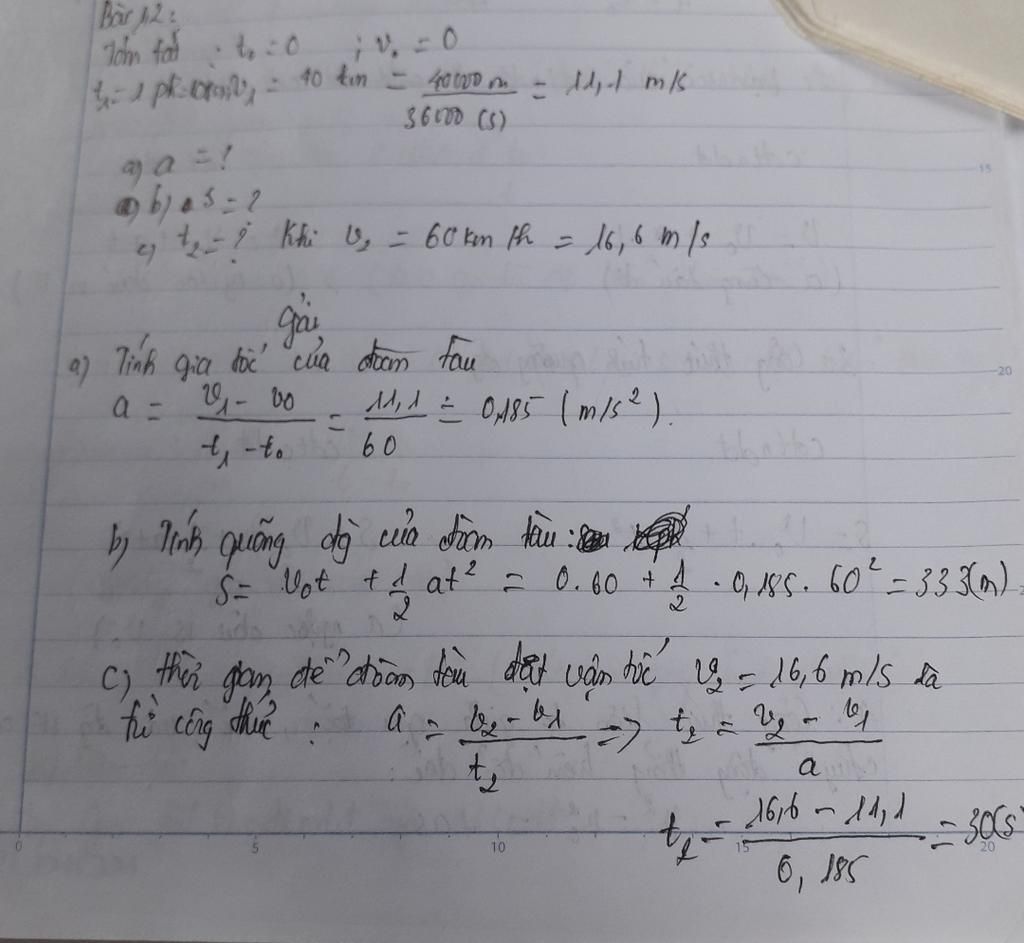 Bài 12:
Tóm tắt : t₀ = 0 ; v₀ = 0
t₁ = 1 ph = v₁ = 40 km = 40000 m / 36000 (s) = 11,1 m/s
a) a = ?
b) s = ?
c) t₂ = ? Khi v₂ = 60 km/h = 16,6 m/s
Giải
a) Tính gia tốc của đoàn tàu
a = (v₁ - v₀) / (t₁ - t₀) = 11,1 / 60 = 0,185 (m/s²).
b) Tính quãng đg của đoàn tàu:
S = v₀t + 1/2 at² = 0.60 + 1/2 . 0,185. 60² = 333(m)
c) thời gian để đoàn tàu đạt vận tốc v₂ = 16,6 m/s là
từ công thức : a = (v₂ - v₁) / t₂ => t₂ = (v₂ - v₁) / a
t₂ = (16,6 - 11,1) / 0,185 = 30(s)
0 5 10 15 20
15
20